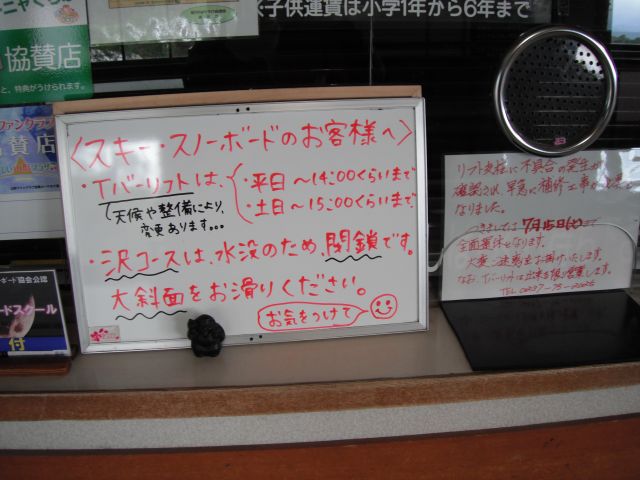 ※子供運賃は小学1年から6年まで
協賛店
と、特典がうけられます。
ファンクラブ
協賛店
〈スキー・スノーボードのお客様へ〉
・Tバーリフトは、
・平日 〜14:00くらいまで
・土日 〜15:00くらいまで
天候や整備により、
変更あります…
・沢コースは、水没のため、閉鎖です。
大斜面をお滑りください。
お気をつけて
リフト支柱に不具合の発生が
確認され、早急に補修工事が
なりました。
7月15日(火)まで
全面運休となります。
大変ご迷惑をお掛けいたします。
なお、Tバーリフトは出来る限り営業します。
ボード協会公認
ードスクール
付